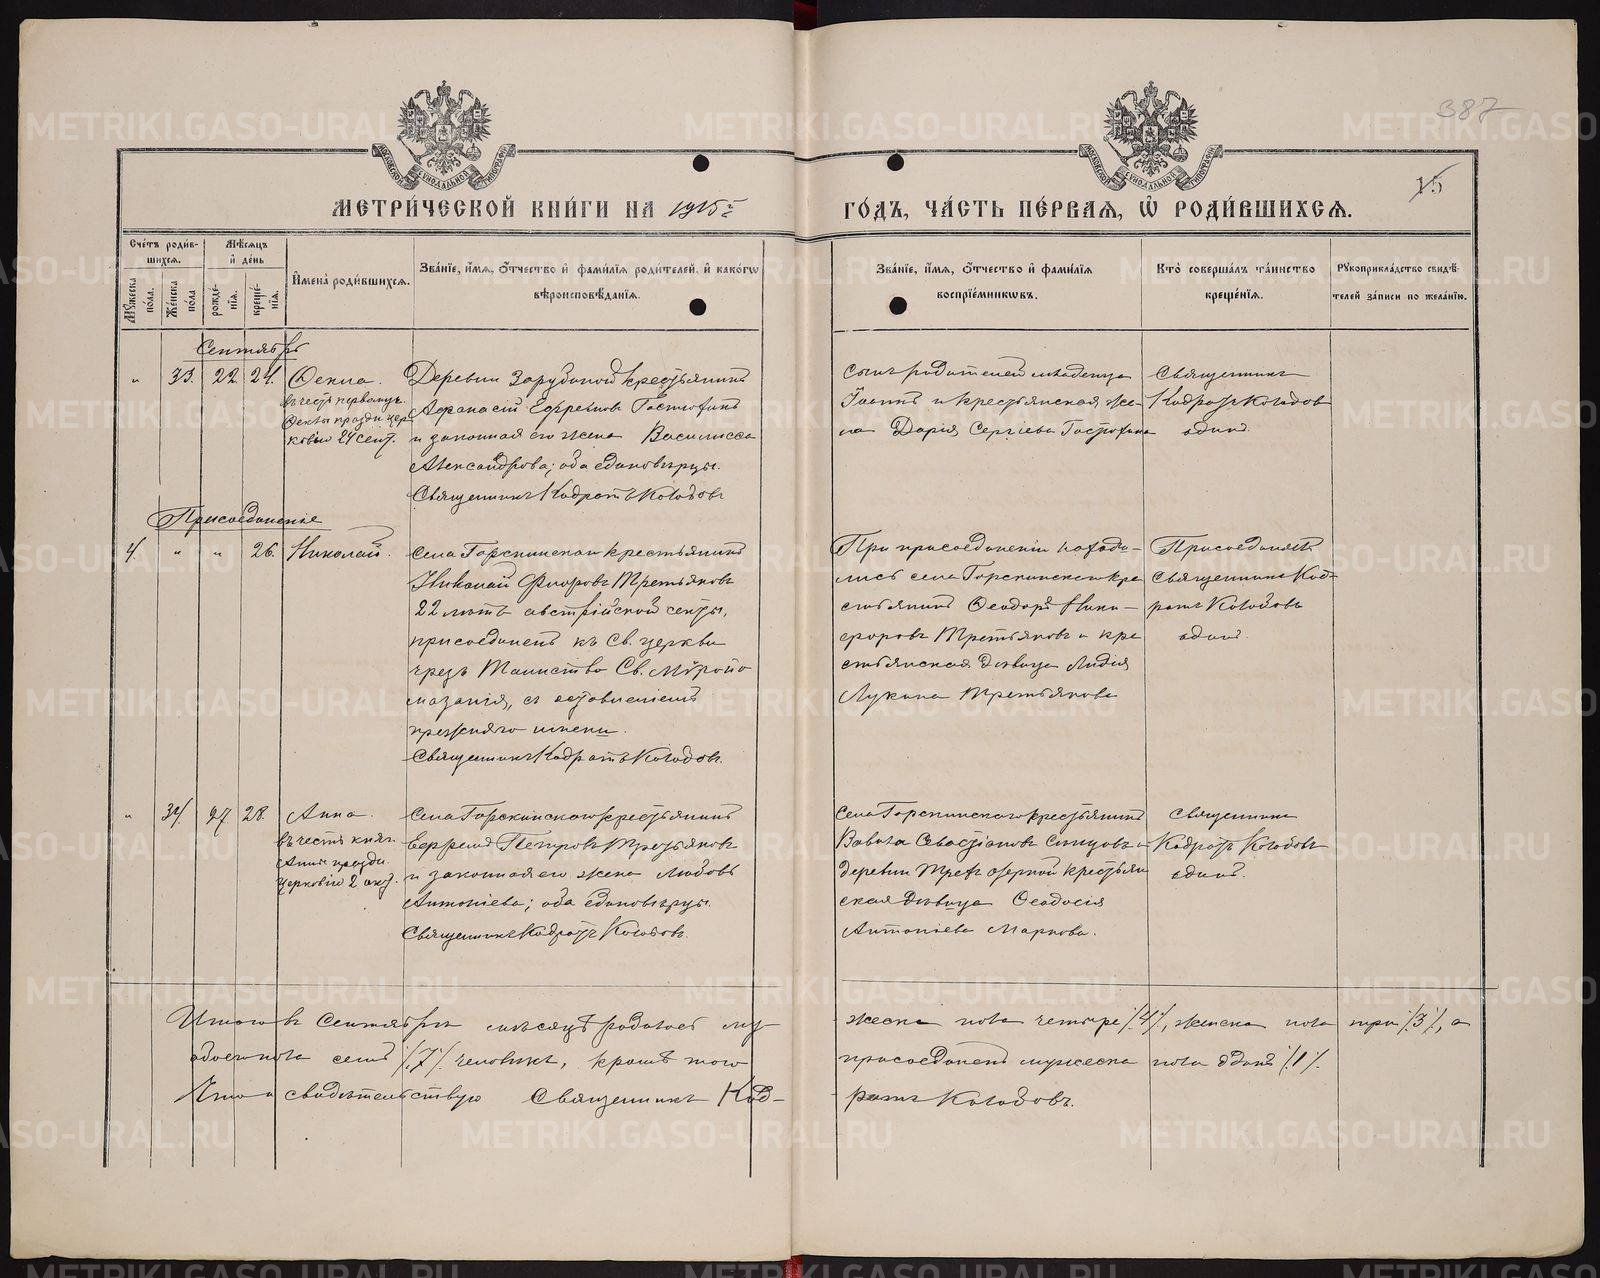 387
15
МОСКОВСКОЙ СѴНОДАЛЬНОЙ ТИПОГРАФІИ
МОСКОВСКОЙ СѴНОДАЛЬНОЙ ТИПОГРАФІИ
МЕТРИ́ЧЕСКОЙ КНИ́ГИ НА 1915й
ГО́ДЪ, ЧА́СТЬ ПЕ́РВАѦ, Ѡ҆ РОДИ́ВШИХСѦ.
Сче́тъ роди́в-
шихсѧ.
Мꙋ́жеска по́ла.
Же́нска по́ла
Мѣ́сѧцъ и҆ де́нь
рожде́-нїѧ.
креще́-нїѧ.
И҆мена̀ роди́вшихсѧ.
Зва́нїе, и҆́мѧ, ѻ҆́тчество и҆ фами́лїѧ роди́телей, и҆ како́гѡ
вѣроисповѣ́данїѧ.
Зва́нїе, и҆́мѧ, ѻ҆́тчество и҆ фами́лїѧ
воспрїе́мникѡвъ.
Кто̀ соверша́лъ та́инство
креще́нїѧ.
Рꙋкоприкла́дство свидѣ́-
телей за́писи по жела́нїю.
Сентябрь
" 33. 22. 24. Ѳекла.
въ честь первомуч.
Ѳеклы праздн. цер
ковью 24 сент.
Деревни Зарубиной крестьянинъ
Аѳанасій Ефремовъ
и законная его жена Василисса
Александрова; оба единовѣрцы.
Священникъ Кодратъ Колобовъ
сынъ родителей младенца
Іоаннъ и крестьянская же-
на Дарія Сергіева
Священникъ
Кодратъ Колобов
один.
Присоединеніе
4. " " 26. Николай.
Села Горскинскаго крестьянинъ
Николай Флоровъ Третьяковъ
22 лѣтъ австрійской секты,
присоединенъ къ Св. церкви
чрезъ Таинство Св. Мѵропо
мазанія, съ оставленіемъ
прежняго имени.
Священникъ Кодратъ Колобовъ.
При присоединеніи находи-
лись села Горскинскаго кре
стьянинъ Ѳеодоръ Ники-
форовъ Третьяковъ и кре
стьянская дѣвица Лидія
Лукина Третьякова
Присоединялъ
священникъ Код-
ратъ Колобовъ
один.
" 34. 27. 28. Анна.
въ честь княг.
Анны праздн.
церковію 2 окт.
Села Горскинскаго крестьянинъ
Петровъ Третьяковъ
и законная его жена Любовь
Антоніева; оба единовѣрцы.
Священникъ Кодратъ Колобовъ.
Села Горскинскаго крестьянинъ
Вавила Севастіановъ Синцовъ и
деревни крестьян
ская дѣвица Ѳеодосія
Антоніева Маркова.
Священникъ
Кодратъ Колобовъ
один.
Итого въ Сентябрѣ мѣсяцѣ родилось му-
жеска пола четыре /4/, женска пола три /3/, а
обоего пола семь /7/ человѣкъ, кромѣ того
присоединенъ мужеска пола одинъ /1/.
Что и свидѣтельствую Священникъ Код-
ратъ Колобовъ.
METRIKI.GASO-URAL.RU